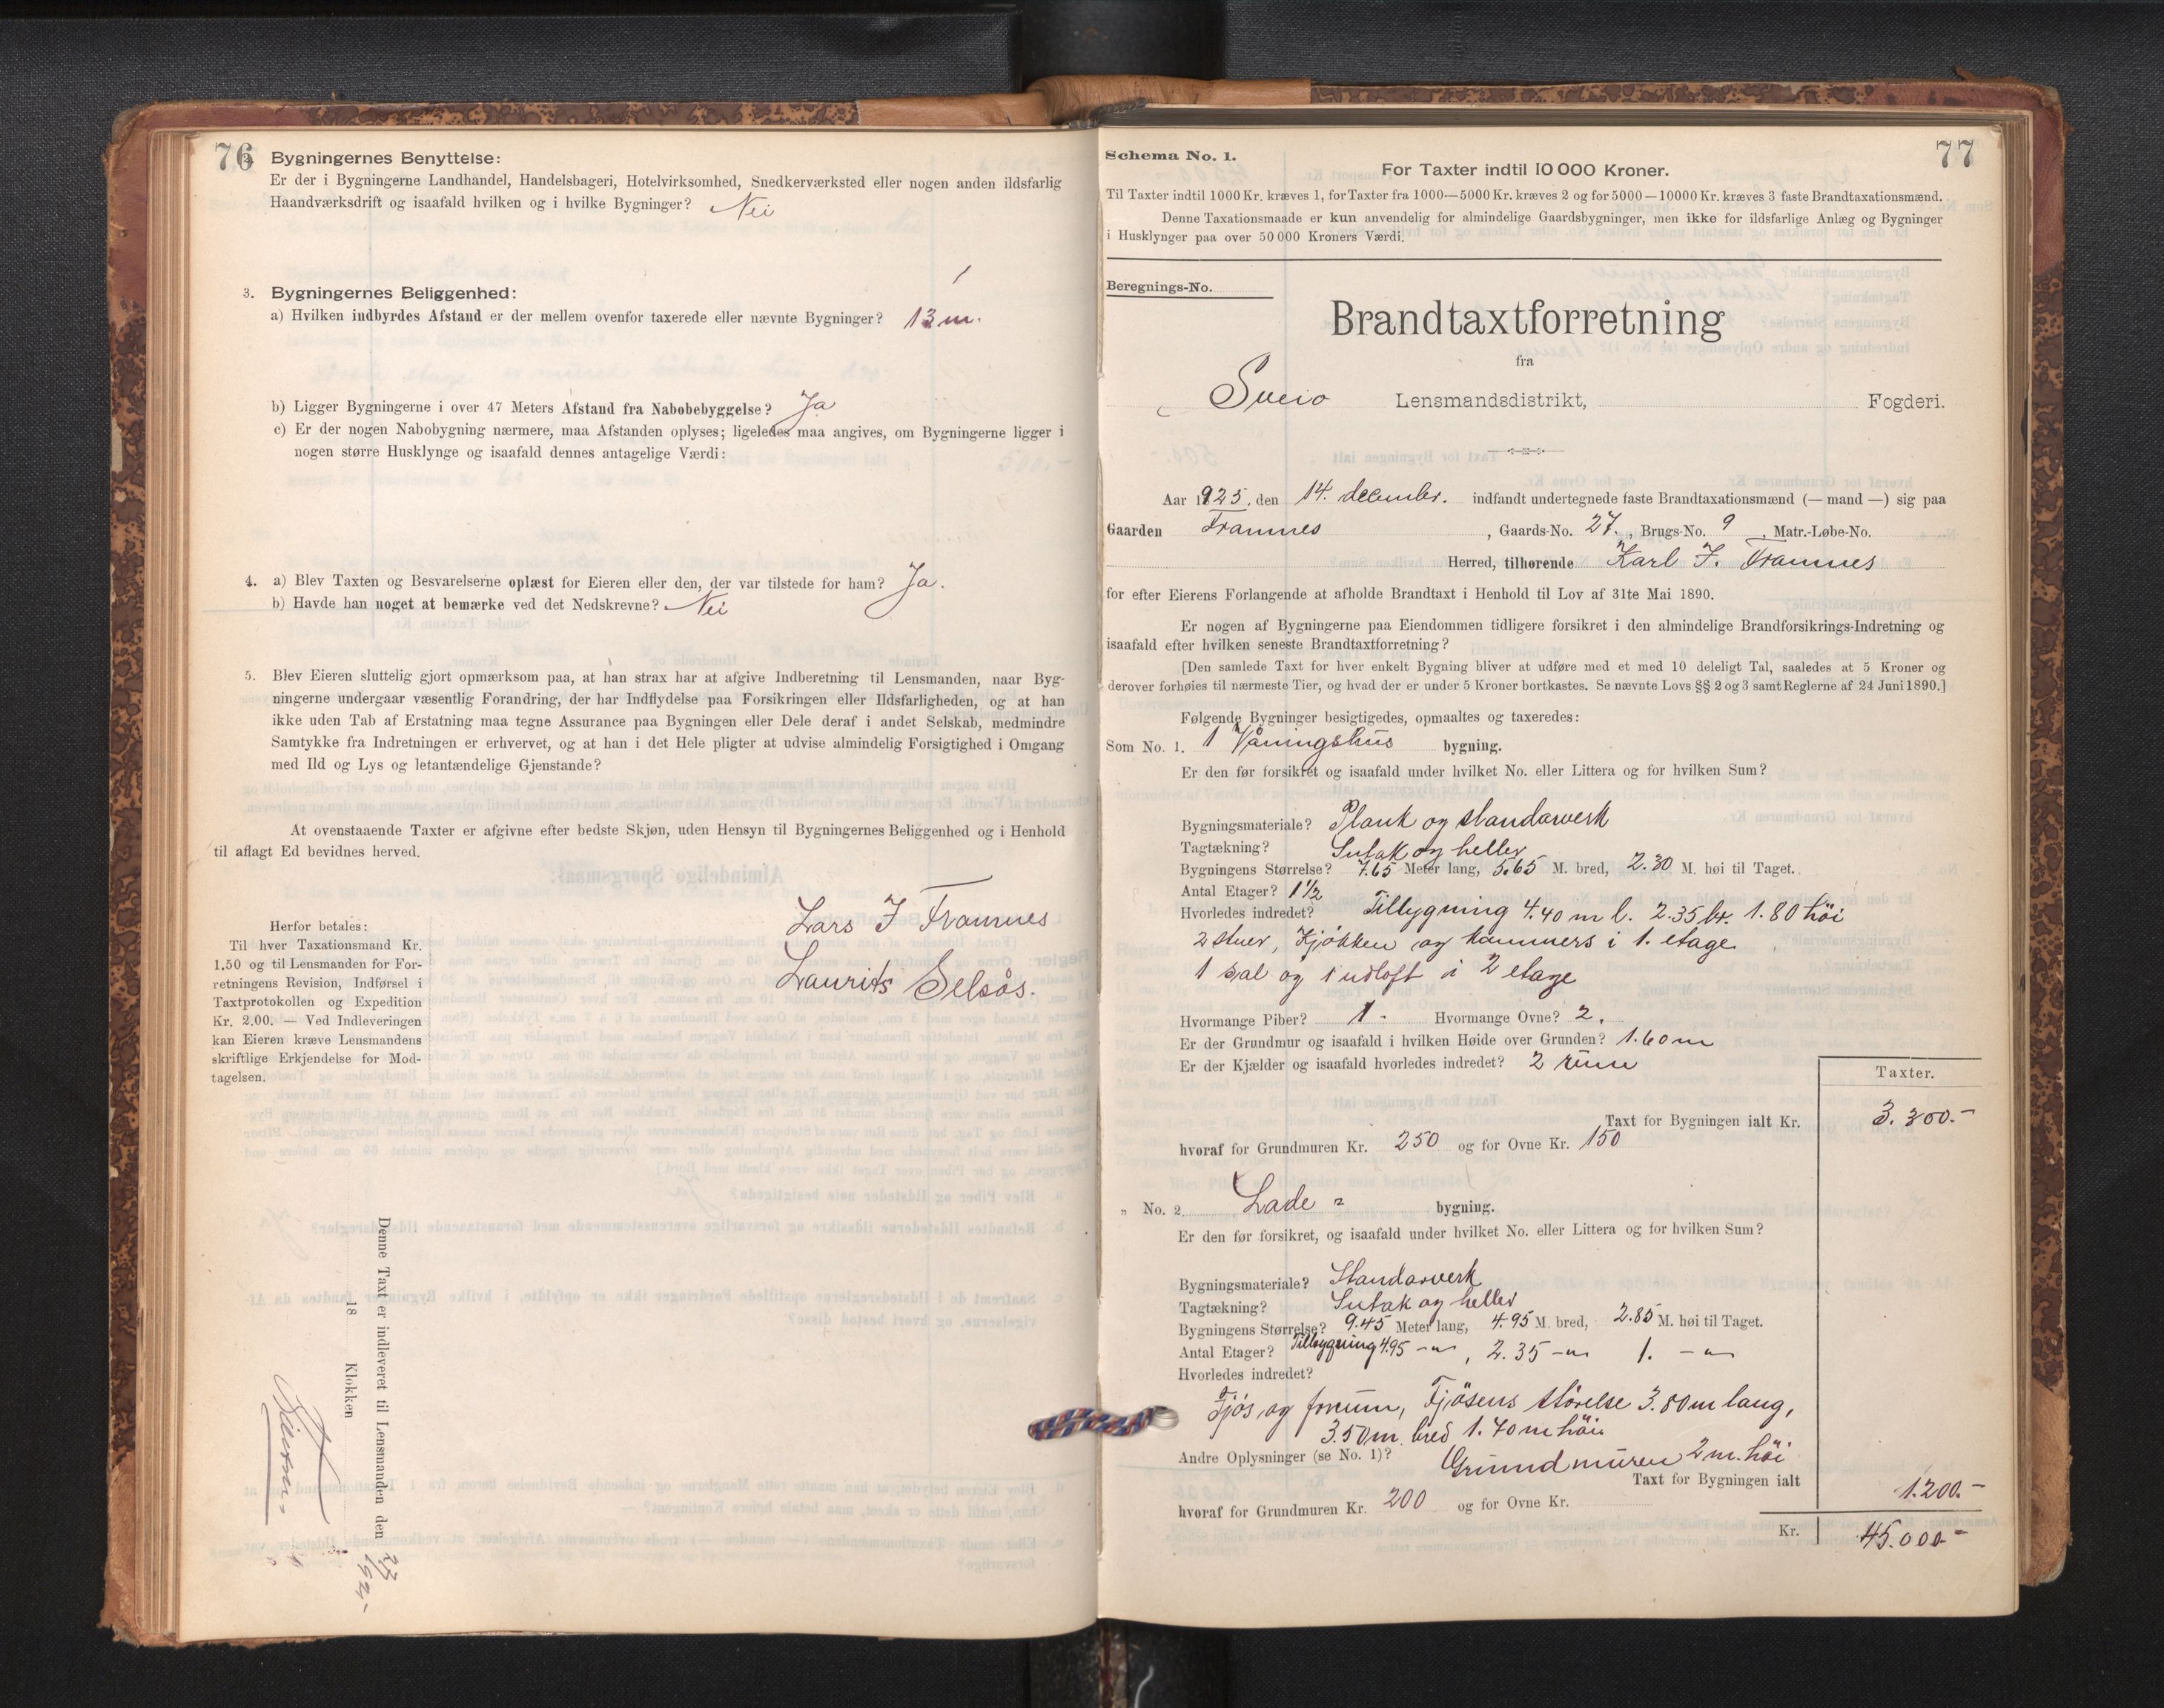 76
2. Bygningernes Benyttelse:
Er der i Bygningerne Landhandel, Handelsbageri, Hotelvirksomhed, Snedkerværksted eller nogen anden ildsfarlig
Haandværksdrift og isaafald hvilken og i hvilke Bygninger? Nei
3. Bygningernes Beliggenhed:
a) Hvilken indbyrdes Afstand er der mellem ovenfor taxerede eller nævnte Bygninger? 13 m.
b) Ligger Bygningerne i over 47 Meters Afstand fra Nabobebyggelse? Ja
c) Er der nogen Nabobygning nærmere, maa Afstanden oplyses; ligeledes maa angives, om Bygningerne ligger i
nogen større Husklynge og isaafald dennes antagelige Værdi:
4. a) Blev Taxten og Besvarelserne oplæst for Eieren eller den, der var tilstede for ham? Ja.
b) Havde han noget at bemærke ved det Nedskrevne? Nei
5. Blev Eieren sluttelig gjort opmærksom paa, at han strax har at afgive Indberetning til Lensmanden, naar Byg-
ningerne undergaar væsentlig Forandring, der har Indflydelse paa Forsikringen eller Ildsfarligheden, og at han
ikke uden Tab af Erstatning maa tegne Assurance paa Bygningen eller Dele deraf i andet Selskab, medmindre
Samtykke fra Indretningen er erhvervet, og at han i det Hele pligter at udvise almindelig Forsigtighed i Omgang
med Ild og Lys og letantændelige Gjenstande?
At ovenstaaende Taxter er afgivne efter bedste Skjøn, uden Hensyn til Bygningernes Beliggenhed og i Henhold
til aflagt Ed bevidnes herved.
Lars J Framnes
Laurits Selsås.
Herfor betales:
Til hver Taxationsmand Kr.
1,50 og til Lensmanden for For-
retningens Revision, Indførsel i
Taxtprotokollen og Expedition
Kr. 2,00. — Ved Indleveringen
kan Eieren kræve Lensmandens
skriftlige Erkjendelse for Mod-
tagelsen.
Denne Taxt er indleveret til Lensmanden den
18 Klokken
77
Schema No. 1.
For Taxter indtil 10 000 Kroner.
Til Taxter indtil 1000 Kr. kræves 1, for Taxter fra 1000—5000 Kr. kræves 2 og for 5000—10000 Kr. kræves 3 faste Brandtaxationsmænd.
Denne Taxationsmaade er kun anvendelig for almindelige Gaardsbygninger, men ikke for ildsfarlige Anlæg og Bygninger
i Husklynger paa over 50 000 Kroners Værdi.
Beregnings-No.
Brandtaxtforretning
fra
Sveio Lensmandsdistrikt, Fogderi.
Aar 1925, den 14. december. indfandt undertegnede faste Brandtaxationsmænd (— mand —) sig paa
Gaarden Framnes, Gaards-No. 27., Brugs-No. 9, Matr.-Løbe-No.
Herred, tilhørende Karl J. Framnes
for efter Eierens Forlangende at afholde Brandtaxt i Henhold til Lov af 31te Mai 1890.
Er nogen af Bygningerne paa Eiendommen tidligere forsikret i den almindelige Brandforsikrings-Indretning og
isaafald efter hvilken seneste Brandtaxtforretning?
[Den samlede Taxt for hver enkelt Bygning bliver at udføre med et med 10 deleligt Tal, saaledes at 5 Kroner og
derover forhøies til nærmeste Tier, og hvad der er under 5 Kroner bortkastes. Se nævnte Lovs §§ 2 og 3 samt Reglerne af 24 Juni 1890.]
Følgende Bygninger besigtigedes, opmaaltes og taxeredes:
Som No. 1. 1 Våningshus bygning.
Er den før forsikret og isaafald under hvilket No. eller Littera og for hvilken Sum?
Bygningsmateriale? Plank og standarverk
Tagtækning? Sutak og heller
Bygningens Størrelse? 7.65 Meter lang, 5.65 M. bred, 2.30 M. høi til Taget.
Antal Etager? 1½
Hvorledes indredet? Tilbygning 4.40 m l. 2.35 br. 1.80 höi
2 stuer, Kjökken og kammers i 1. etage
1 sal og 1 udloft i 2 etage
Hvormange Piber? 1. Hvormange Ovne? 2.
Er der Grundmur og isaafald i hvilken Høide over Grunden? 1.60 m
Er der Kjælder og isaafald hvorledes indredet? 2 rum
Taxter.
Taxt for Bygningen ialt Kr. 3.300.-
hvoraf for Grundmuren Kr. 250 og for Ovne Kr. 150
„ No. 2. Lade = bygning.
Er den før forsikret, og isaafald under hvilket No. eller Littera og for hvilken Sum?
Bygningsmateriale? Standarverk
Tagtækning? Sutak og heller
Bygningens Størrelse? 9.45 Meter lang, 4.95 M. bred, 2.85 M. høi til Taget.
Antal Etager? Tilbygning 4.95 -"-, 2.35 -"- 1. -"-
Hvorledes indredet?
Fjös og forrum, Fjösens störelse 3.80 m lang,
3.50 m. bred 1.70 m höi.
Andre Oplysninger (se No. 1)? Grundmuren 2 m. höi
Taxt for Bygningen ialt 1.200.-
hvoraf for Grundmuren Kr. 200 og for Ovne Kr.
Kr. 45.000-